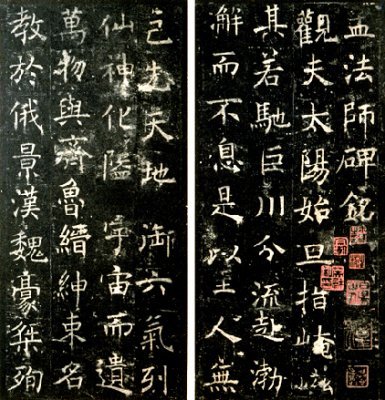 孟法師碑銘
觀夫太陽始旦指崦嵫
其若馳巨川分流赴渤
澥而不息是以至人無
己先天地 御六氣列
仙神化隘 宇宙而遺
萬物與齊魯縉紳束名
教於俄景漢魏豪桀殉